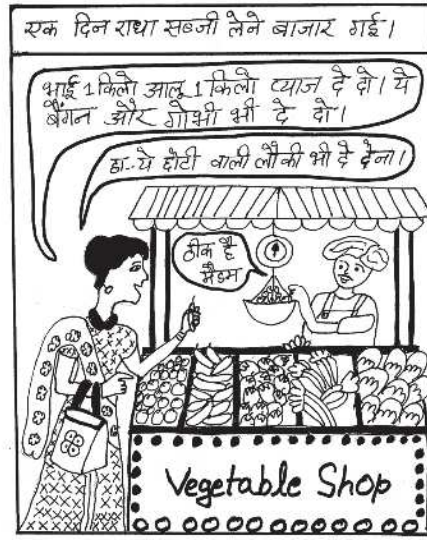 एक दिन राधा सब्जी लेने बाजार गई।
भाई 1 किलो आलू 1 किलो प्याज दे दो। ये
बैंगन और गोभी भी दे दो।
हा..ये छोटी वाली लौकी भी दे देना।
ठीक है
मैडम
Vegetable Shop